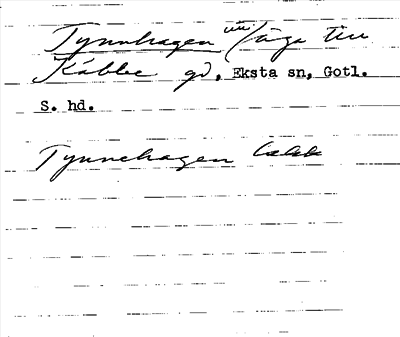 Tynnhagen äga till
Kåbbe gd, Eksta sn, Gotl.
S. hd.
Tynnehagen